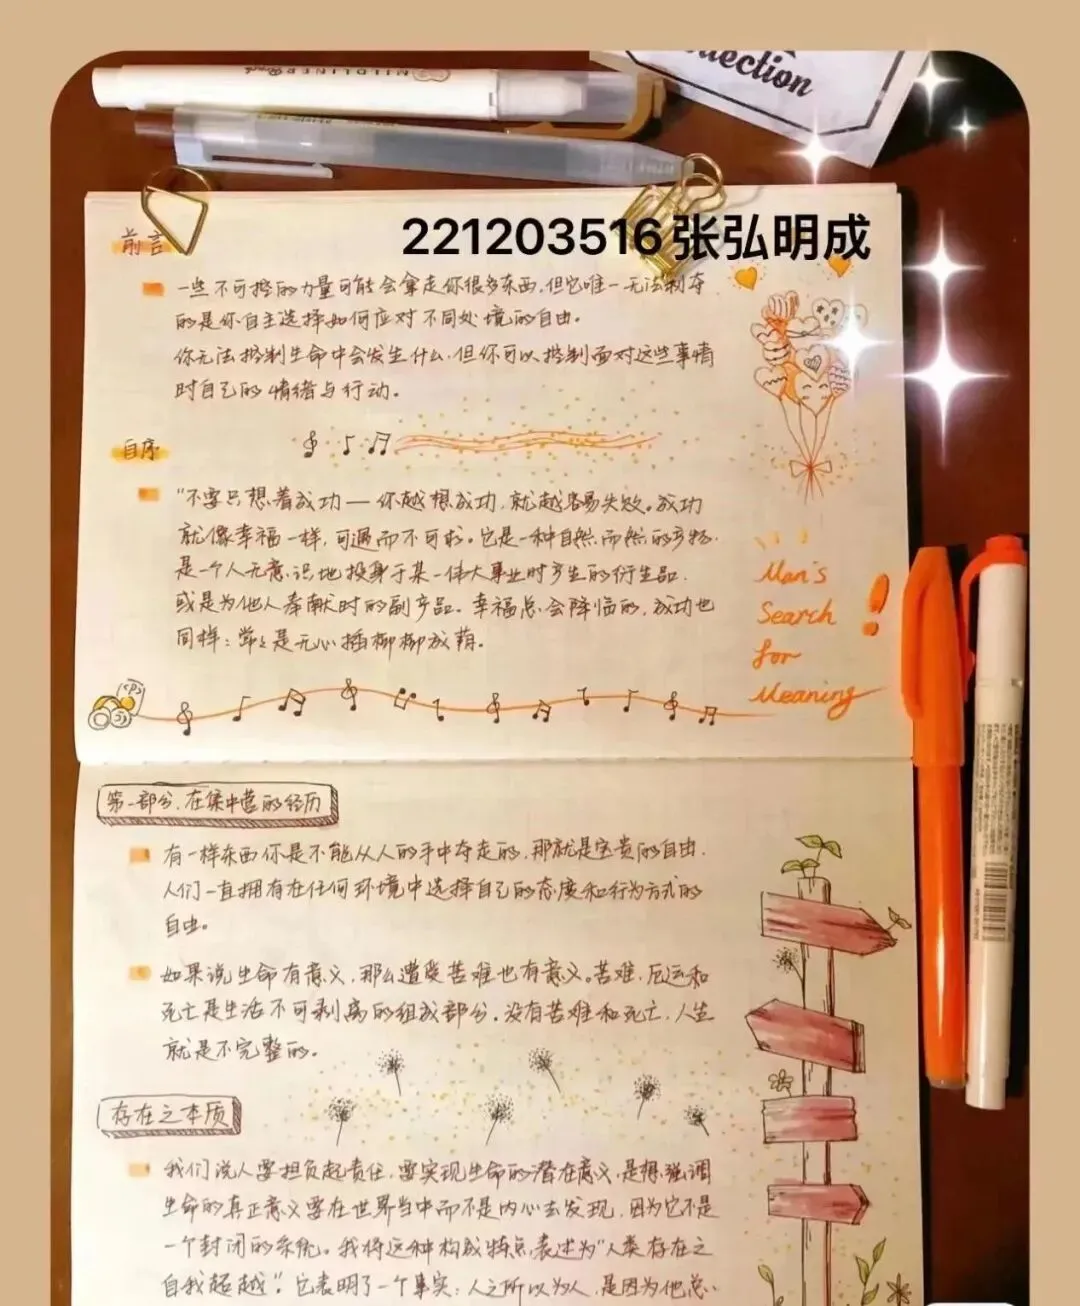 MILDLINER
llection
221203516张弘明成
前言
一些不可控的力量可能会拿走你很多东西,但它唯一无法剥夺
的是你自主选择如何应对不同处境的自由。
你无法控制生命中会发生什么,但你可以控制面对这些事情
时自己的情绪与行动。
自序
“不要只想着成功—你越想成功,就越容易失败。成功
就像幸福一样,可遇而不可求。它是一种自然而然的产物.
是一个人无意识地投身于某一伟大事业时产生的衍生品.
或是为他人奉献时的副产品。幸福总会降临的,成功也
同样:常常是无心插柳柳成荫。
Man's
Search
for
Meaning
!
第一部分.在集中营的经历
有一样东西你是不能从人的手中夺走的,那就是宝贵的自由.
人们一直拥有在任何环境中选择自己的态度和行为方式的
自由。
如果说生命有意义,那么遭受苦难也有意义。苦难、厄运和
死亡是生活不可剥离的组成部分。没有苦难和死亡,人生
就是不完整的。
存在之本质
我们说人要担负起责任,要实现生命的潜在意义,是想强调
生命的真正意义要在世界当中而不是内心去发现,因为它不是
一个封闭的系统。我将这种构成特点表述为“人类存在之
自我超越”。它表明了一个事实:人之所以为人,是因为他总.